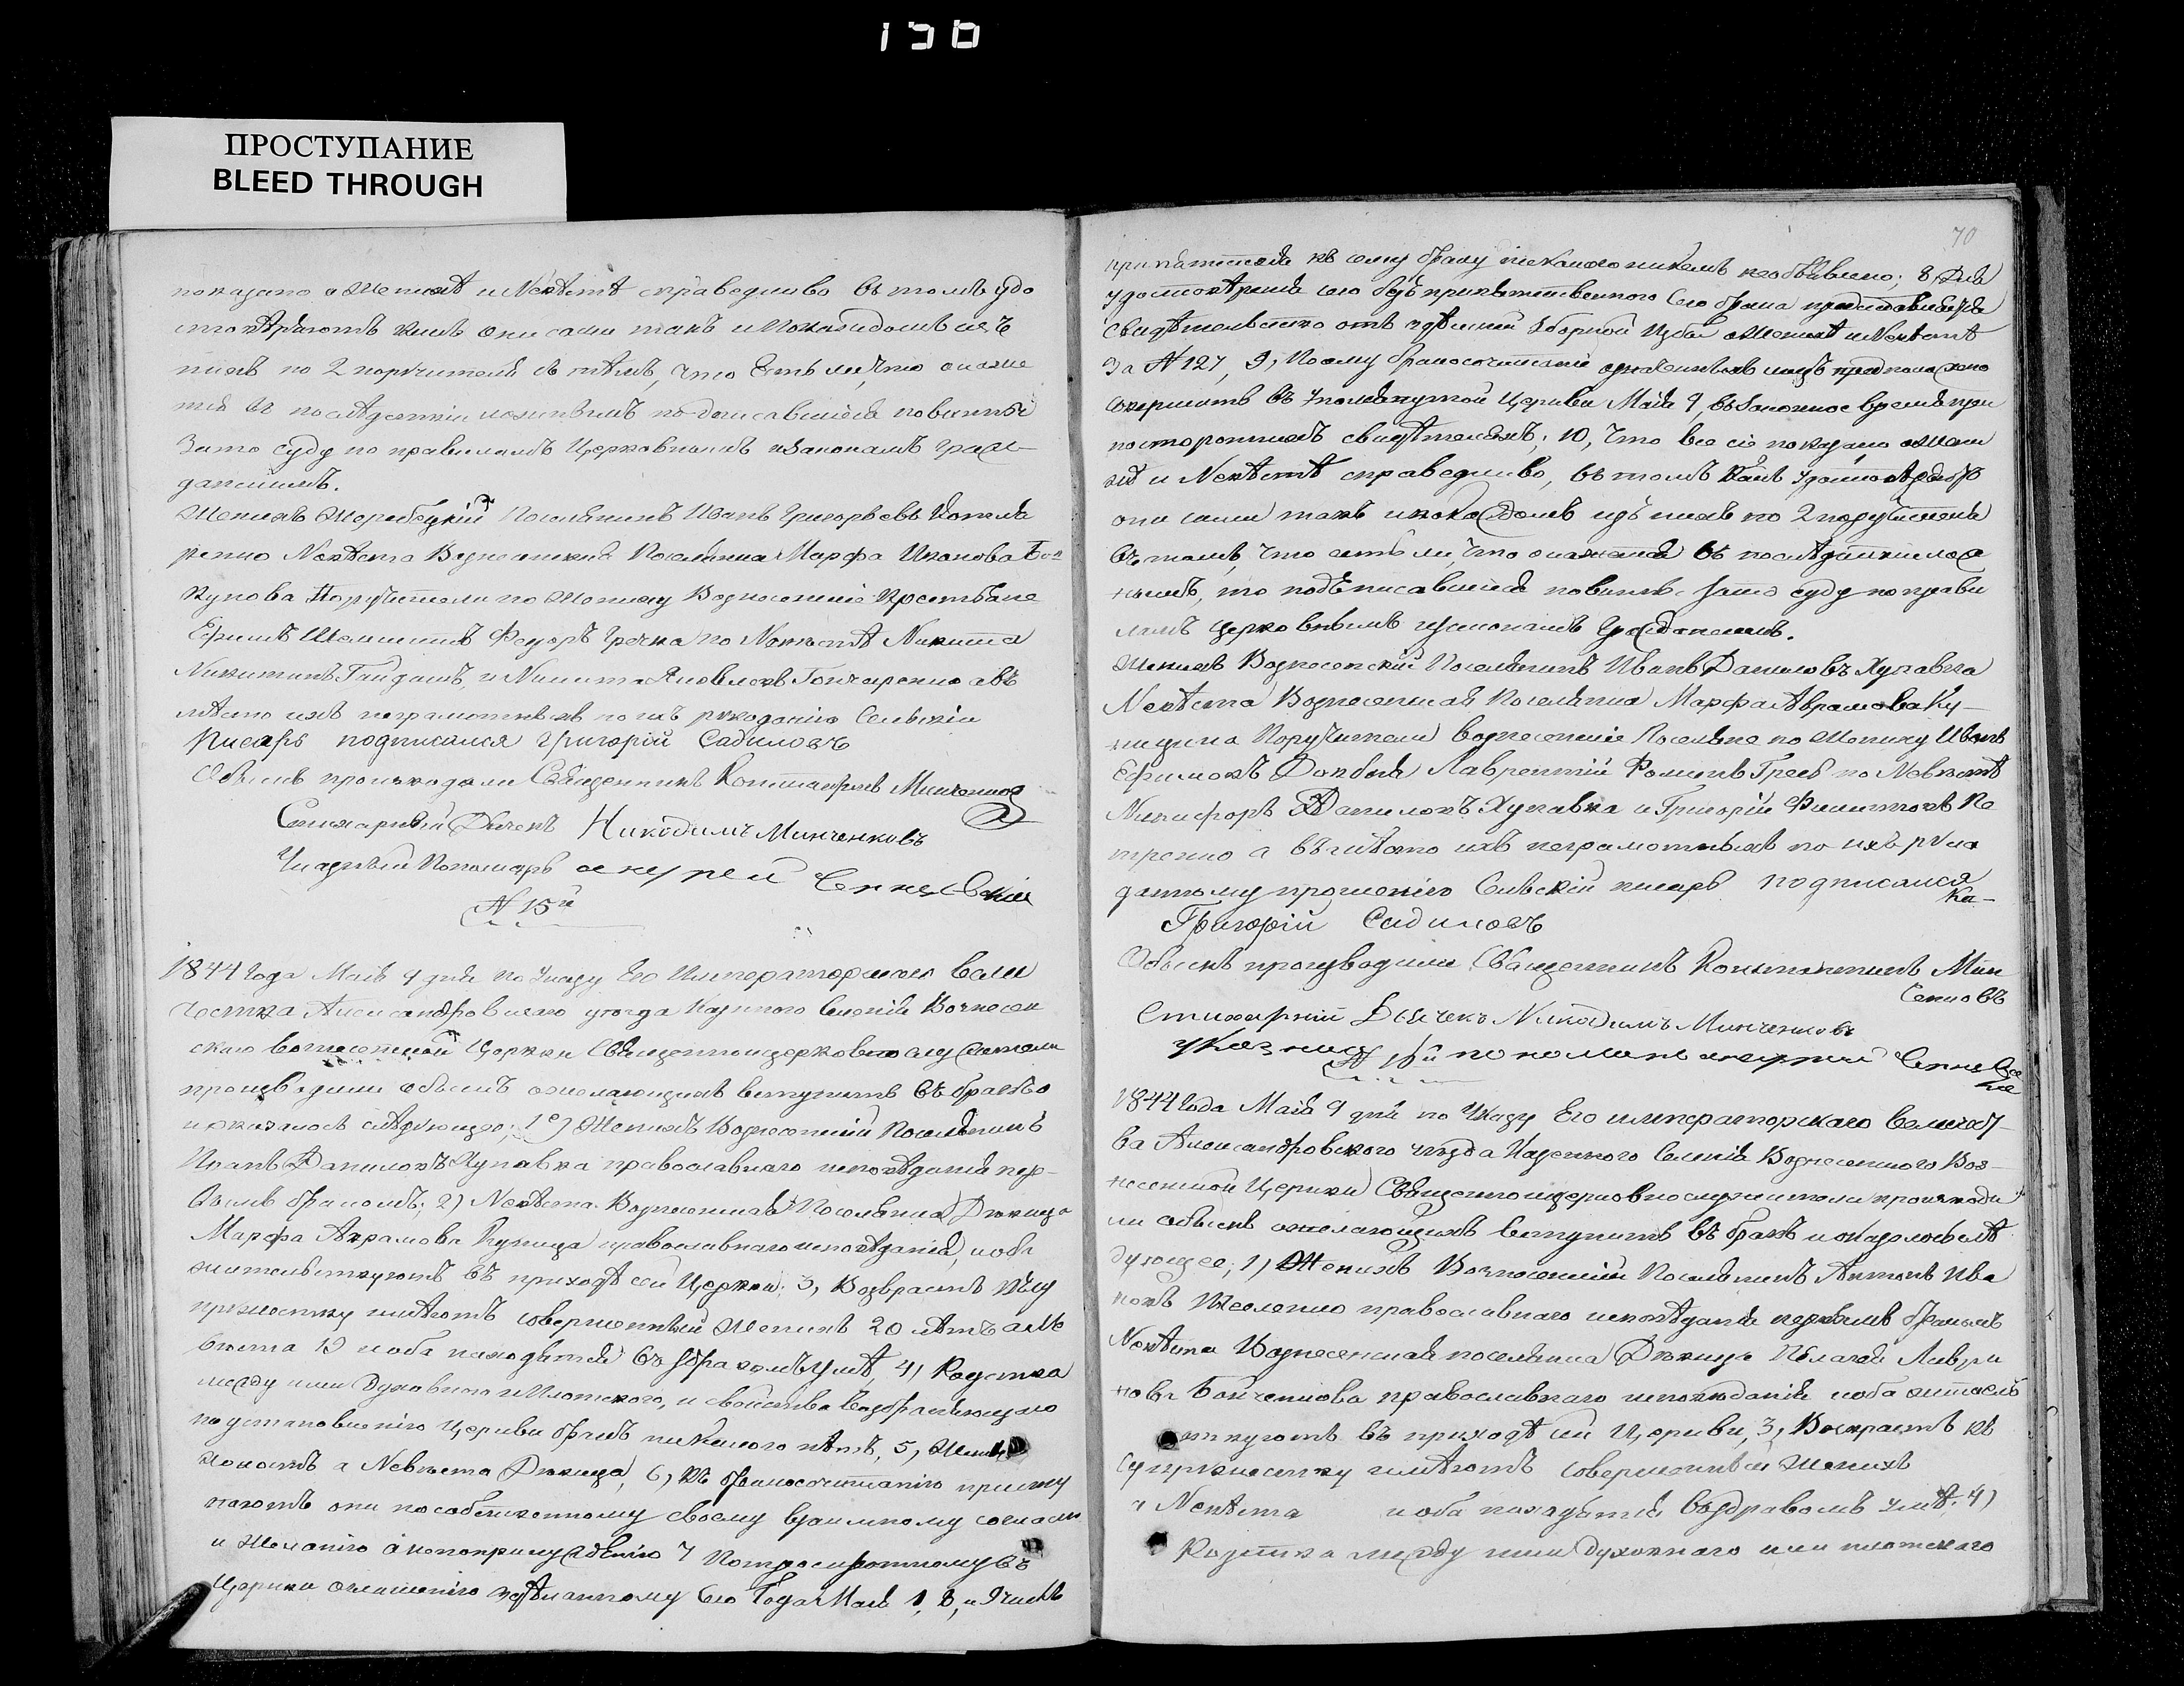 130
ПРОСТУПАНИЕ
BLEED THROUGH
показано о Женихѣ и Невѣстѣ справедливо въ томъ удо
стовѣряютъ какъ они сами такъ и По
нихъ по 2 поручителя съ тѣмъ, что Есть ли что окаже
тся въ послѣдствіи ложнымъ подписавшіеся повинны
Зато суду по правиламъ Церковнымъ и Законамъ граж-
данскимъ.
Женихъ Жеребецкій Поселянинъ Иванъ Григорьевъ
Невѣста Вознесенская Поселянка Марфа Иванова
Поручители по Жениху Вознесенскіе
Ефимъ Федоръ Гречка по Невѣстѣ Никита
Никитинъ Гайдашъ, и Никита Яковлевъ Гончаренко а въ
мѣсто ихъ неграмотныхъ по ихъ рукоданію Сельскій
Писарь подписался Григорій Садиловъ
Обыскъ производили Священникъ Константинъ
Стихарный Дьячекъ Никодимъ Минченковъ
Указный Пономарь
№ 15й
1844 Года Маія 9 дня по Указу Его Императорскаго Вели
чества Александровскаго уезда Казенного Селенія Вознесен
скаго Вознесенской Церкви Священноцерковнослужители
произвядили обыскъ желающихъ вступить въ бракъ о
и оказалось слѣдующее; 1е) Женихъ Вознесенскій Поселянинъ
Иванъ Даниловъ Хупавка православнаго исповѣданія пер-
вымъ бракомъ; 2) Невѣста Вознесенская Поселянка Дѣвица
Марфа Аврамова Куница православнаго исповѣданія, и оба
жительствуютъ въ приходѣ сей Церкви; 3, Возврастъ къ су
пружеству имѣютъ совершенный Женихъ 20 лѣтъ а Не
вѣста 19 и оба находятся въ здравомъ умѣ, 4) Родства
между ими Духовного и Плотского, и свойства возбраняющаго
по установленію Церкви бракъ никакого нѣтъ, 5, Женихъ
холостъ а Невѣста Дѣвица, 6, къ бракосочитанію присту
паютъ они по собственному своему взаимному согласію
и Желанію а не по принужденію 7 По троекратному въ
Церкви оглашенію здѣланному Сего Года Маія 1, 8, и 9 числъ
70
припятствія къ сему браку никакого никемъ не объявлено; 8, Для
удостовѣренія сего безъ припятственного Сего брака представляется
Свидѣтельство отъ здѣшней Зборной Избы о Женихѣ и Невѣстѣ
За № 127, 9, Посему бракосочитаніе означенныхъ лицъ предположено
совершить въ упомянутой Церкви Маія 9, въ Законное время при
постороннихъ свидѣтеляхъ; 10, Что все сіе показано о Жени
хѣ и Невѣстѣ справедливо, въ томъ какъ удостовѣряютъ
они сами такъ и по каждомъ изъ нихъ по 2 поручителя
въ томъ, что есть ли что окажется въ послѣдствіи лож
нымъ, то подъписавшіеся повинны зато суду по прави
ламъ церковнымъ и законамъ Гражданскимъ.
Женихъ Вознесенскій Поселянинъ Иванъ Даниловъ Хупавка
Невѣста Вознесенская Поселянка Марфа Аврамова Ку-
ницина Поручители Вознесенскіе Поселяне по Жениху Иванъ
Ефимовъ Довбня Лаврентій Фоминъ по Невѣстѣ
Никифоръ Даниловъ Хупавка и Григорій Филиповъ Пе
тренко а въ мѣсто ихъ неграмотныхъ по ихъ рука
данному прошенію Сельскій писарь подписался
Григорій Садиловъ
Обыскъ производили Священникъ Константинъ Мин
ченковъ
Стихарній Дьячекъ Никодимъ Минченковъ
указній пономарь
№ 16й
1844 Года Маія 9 дня по Указу Его императорскаго Величест-
ва Александровского уезда Казенного Селенія Вознесенского Воз-
несенской Церкви Священноцерковнослужители производи
ли обыскъ желающихъ вступить въ бракъ и оказалось слѣ
дующее; 1) Женихъ Вознесенскій Поселянинъ Антонъ Ива
новъ православнаго исповѣданія первымъ бракомъ
Невѣста Вознесенская поселянка Дѣвица Пелагея Лаврѣ
нова Бойченкова православнаго исповѣданія и оба жительс
твуютъ въ приходѣ сей Церкви, 3, Возврастъ къ
супружеству имѣютъ совершенный Женихъ
а Невѣста и оба находятся въ здравомъ умѣ, 4)
Родства между ими Духовнаго или плотскаго